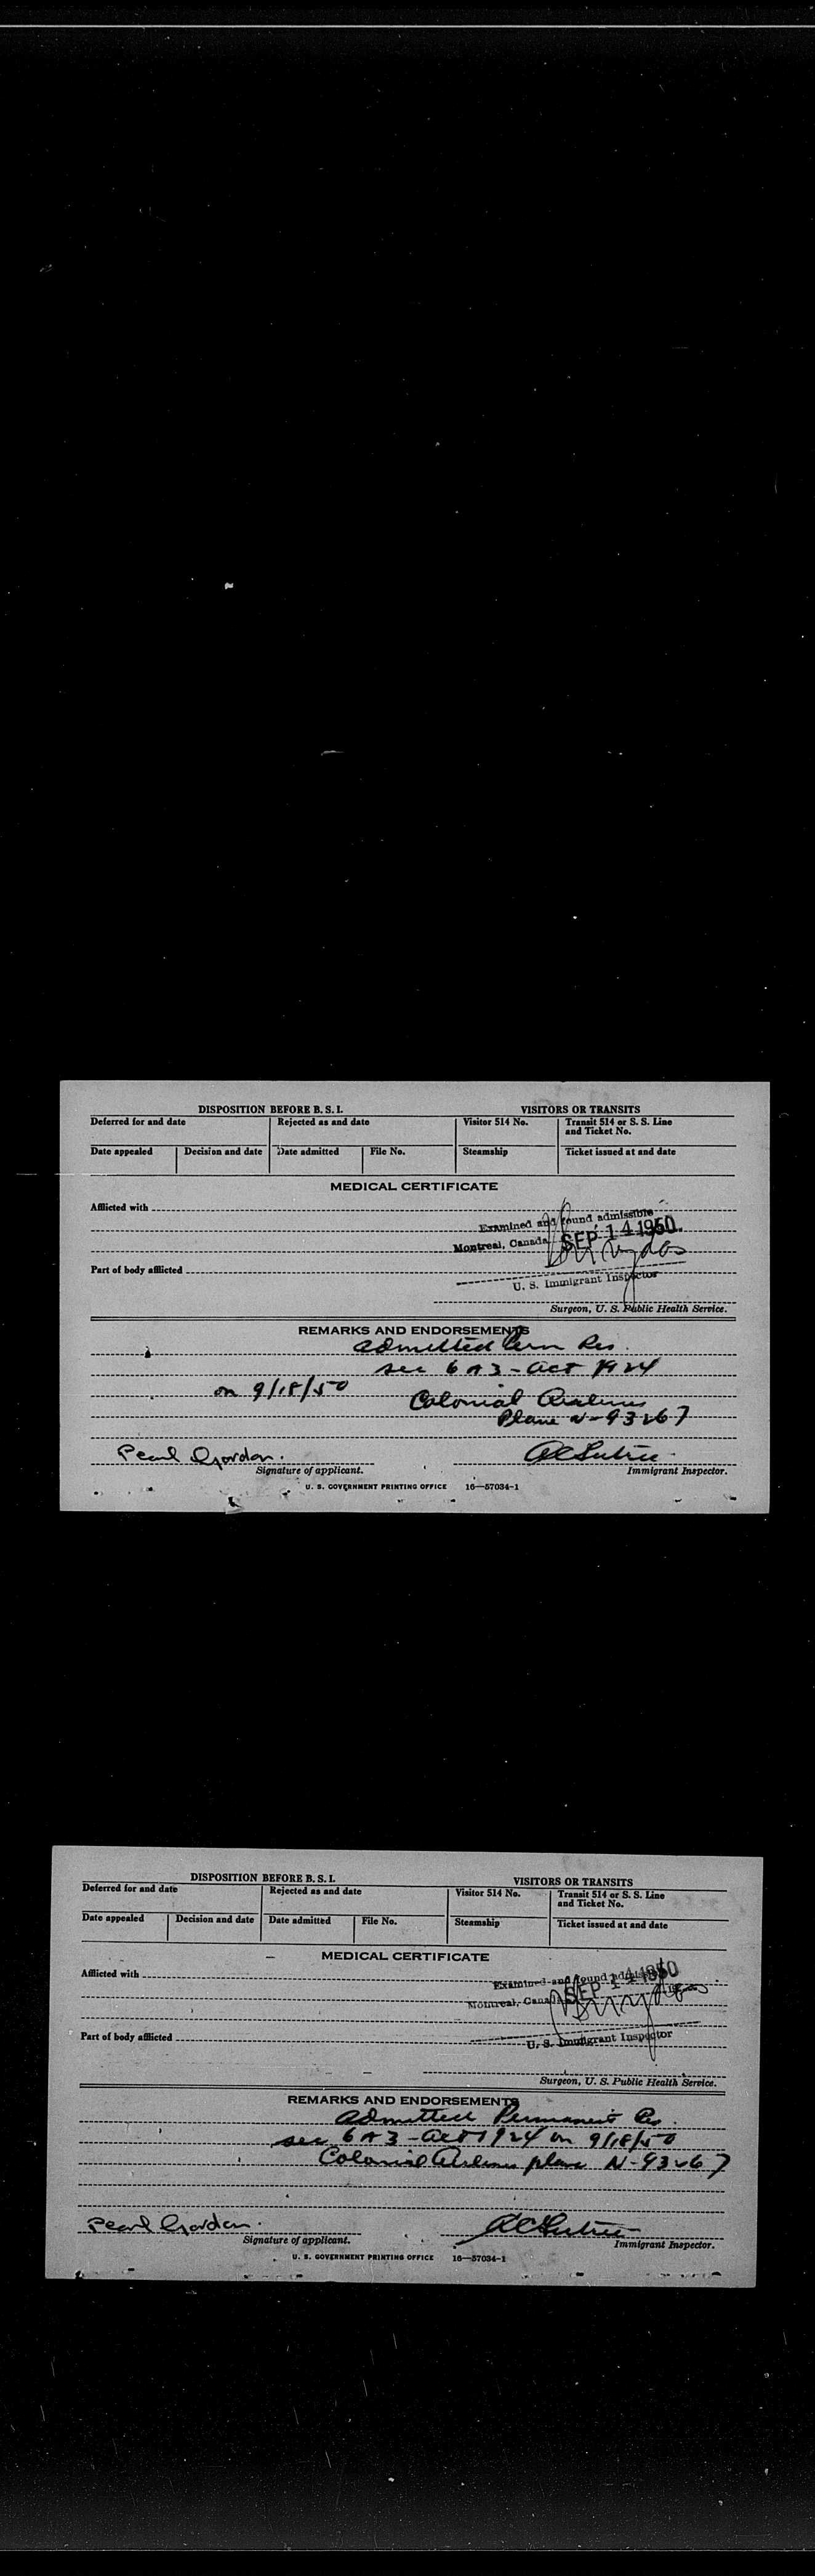 DISPOSITION BEFORE B. S. I.
VISITORS OR TRANSITS
Deferred for and date
Rejected as and date
Visitor 514 No.
Transit 514 or S. S. Line
and Ticket No.
Date appealed
Decision and date
Date admitted
File No.
Steamship
Ticket issued at and date
MEDICAL CERTIFICATE
Afflicted with
Examined and found admissible
Montreal, Canada SEP 14 1950
Part of body afflicted
U. S. Immigrant Inspector
Surgeon, U. S. Public Health Service.
REMARKS AND ENDORSEMENTS
Admitted Perm Res.
sec 6 A 3 - Act 1924
on 9/18/50
Colonial Airlines
Plane N-93267
Pearl Gordon.
Signature of applicant.
Immigrant Inspector.
U. S. GOVERNMENT PRINTING OFFICE 16—57034-1
DISPOSITION BEFORE B. S. I.
VISITORS OR TRANSITS
Deferred for and date
Rejected as and date
Visitor 514 No.
Transit 514 or S. S. Line
and Ticket No.
Date appealed
Decision and date
Date admitted
File No.
Steamship
Ticket issued at and date
MEDICAL CERTIFICATE
Afflicted with
Examined and found admissible
Montreal, Canada SEP 14 1950
Part of body afflicted
U. S. Immigrant Inspector
Surgeon, U. S. Public Health Service.
REMARKS AND ENDORSEMENTS
Admitted Permanent Res.
sec 6 A 3 - Act 1924 on 9/18/50
Colonial Airlines plane N-93267
Pearl Gordon.
Signature of applicant.
Immigrant Inspector.
U. S. GOVERNMENT PRINTING OFFICE 16—57034-1